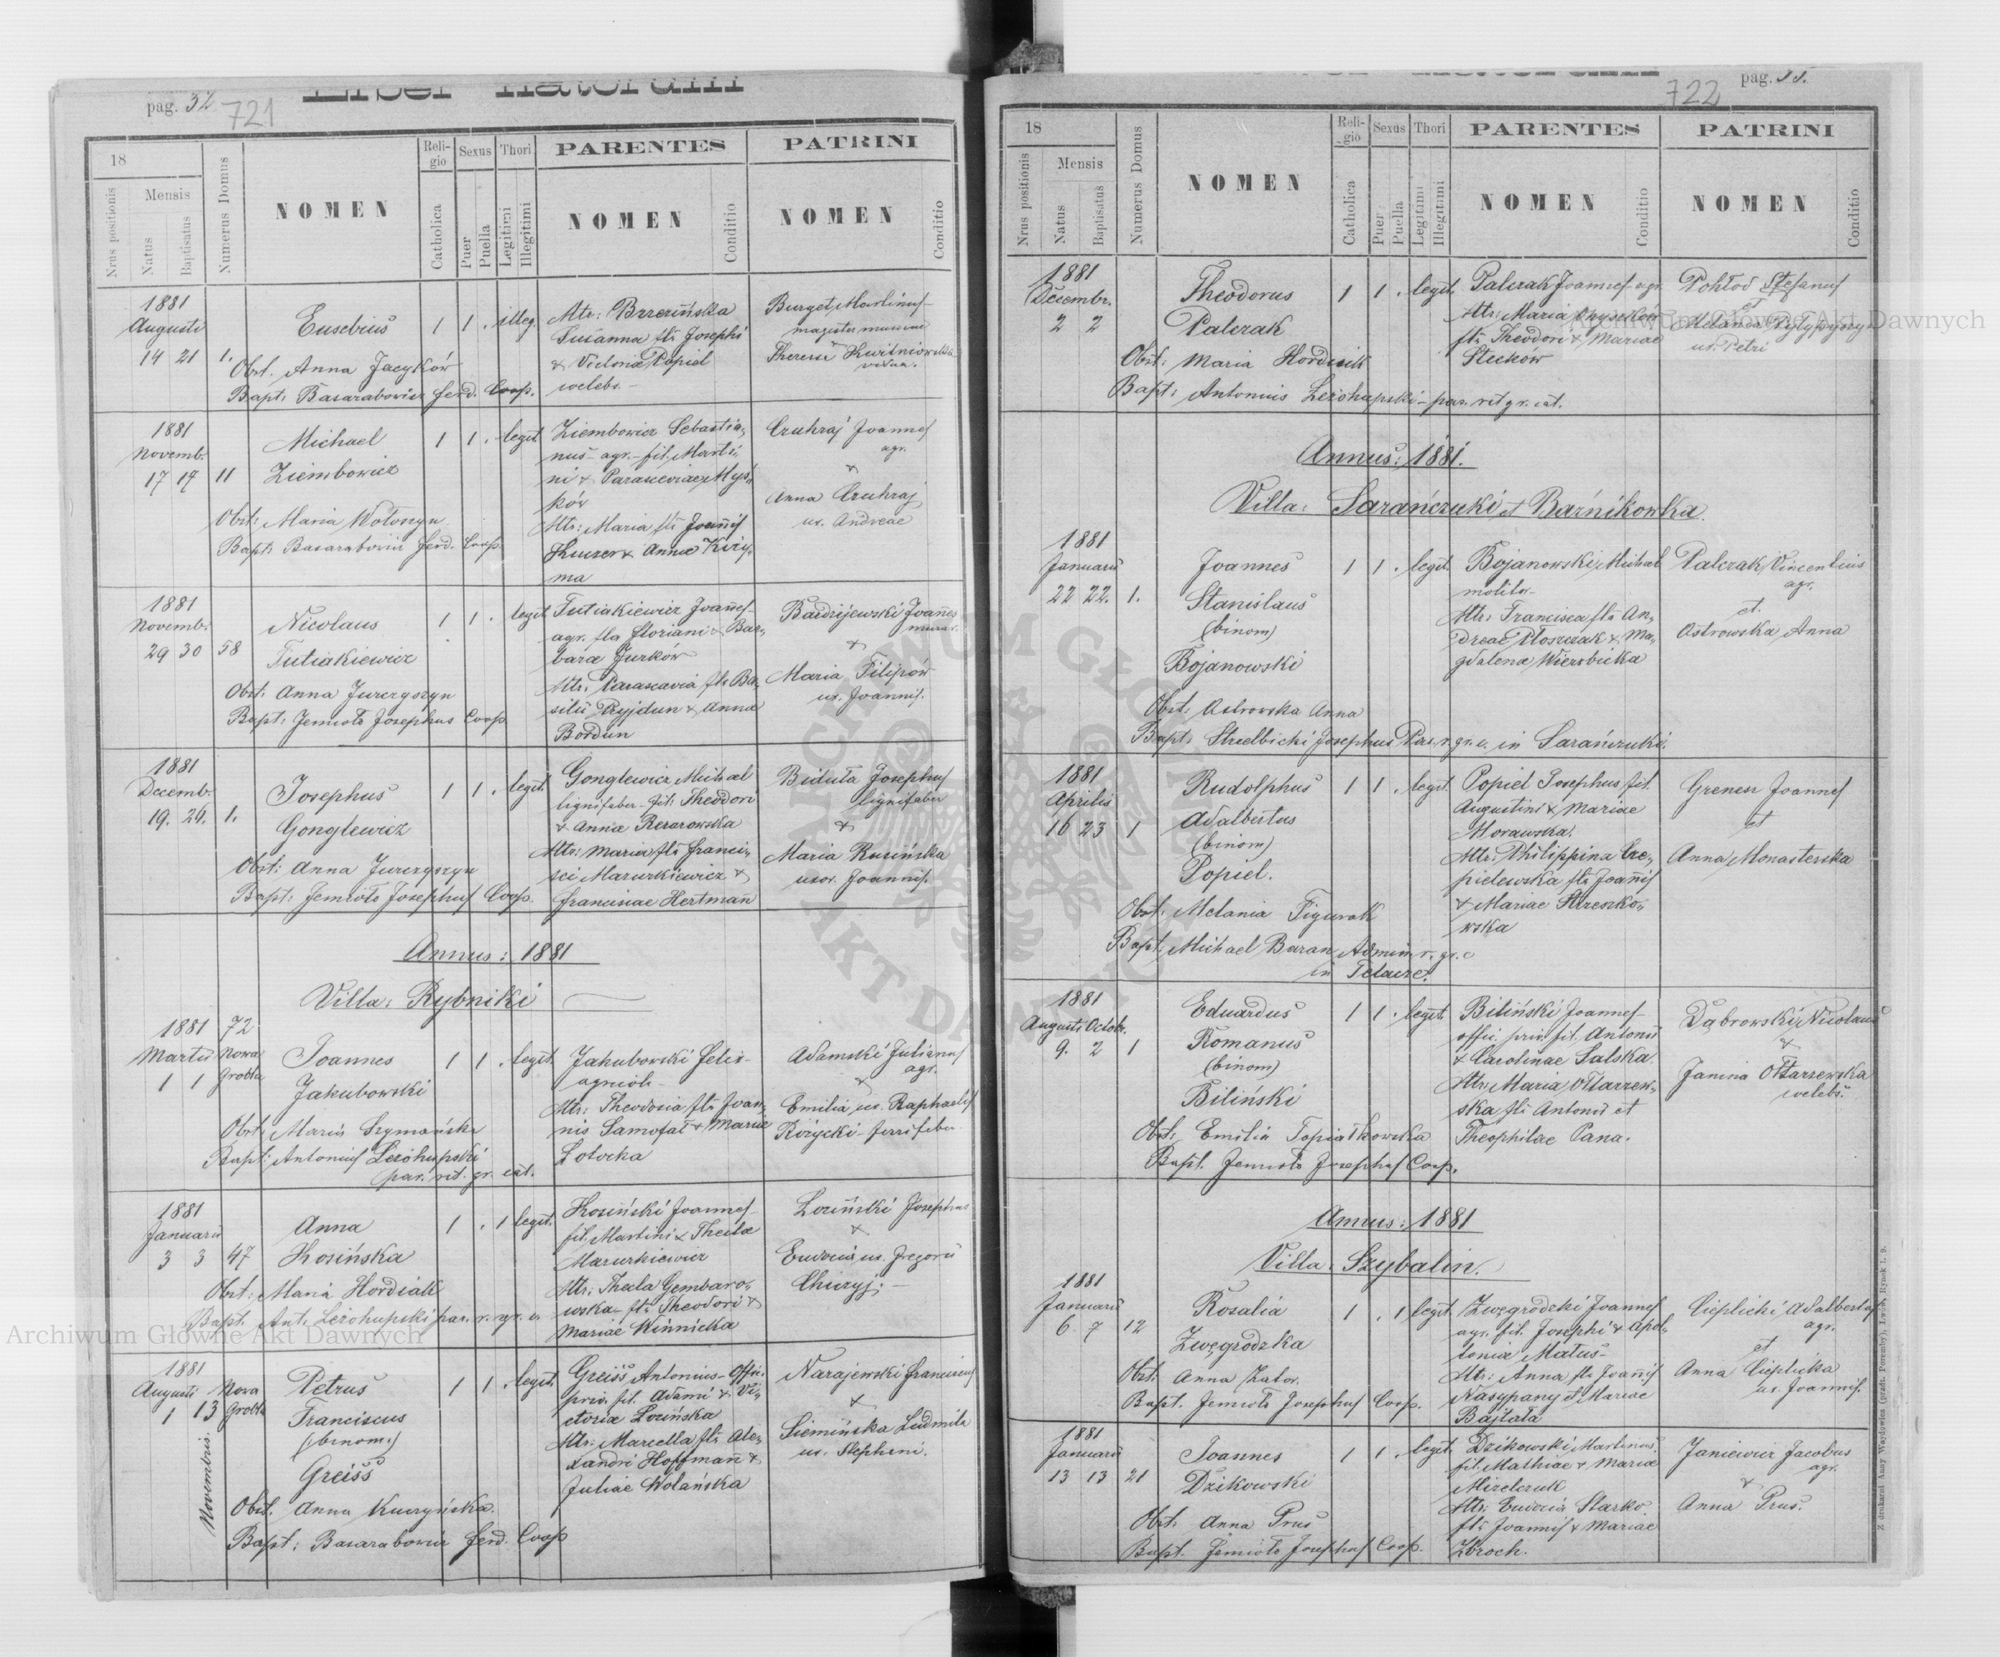 pag. 32 721
Liber natorum
18
Nrus positionis
Mensis
Natus
Baptisatus
Numerus Domus
NOMEN
Religio
Catholica
Sexus
Puer
Puella
Thori
Legitimi
Illegitimi
PARENTES
NOMEN
Conditio
PATRINI
NOMEN
Conditio
1881
Augusti
14 21 1.
Eusebius
1 1 . illeg.
Obst. Anna Jacyków
Bapt: Basarabowicz Ferd. Coop.
Mtr: Brzezińska
Susanna fla Josephi
& Victoria Popiel
coelebs.
Burget Martinus
Theresia Kwitniowska
vidua.
1881
Novemb.
17 19 11
Michael
Ziembowicz
1 1 . legit.
Obst: Maria Wołoszyn
Bapt: Basarabowicz Ferd. Coop.
Ziembowicz Sebastia-
nus agr. fil. Marti-
ni & Parasceviae Mys-
ków
Mtr: Maria fla Joannis
Kuczer & Anna Kiry-
ma
Czuhraj Joannes
agr.
&
Anna Czuhraj
ux. Andreae
1881
Novemb.
29 30 58
Nicolaus
Tutiakiewicz
1 1 . legit.
Obst: Anna Jurczyszyn
Bapt: Jemioło Josephus Coop.
Tutiakiewicz Joannes
agr. fls Floriani & Bar-
bara Jurków
Mtr: Parascevia fla Ba-
silii Ryjdun & Anna
Bordun
Bardzijewski Joannes
murar.
&
Maria Filipów
ux. Joannis.
1881
Decemb.
19. 26. 1.
Josephus
Gonglewicz
1 1 . legit.
Obst: Anna Jurczyszyn
Bapt: Jemioło Josephus Coop.
Gonglewicz Michael
lignifaber fil: Theodori
& Anna Rezarowska
Mtr: Maria fla Franci-
sci Mazurkiewicz &
Francisiae Hertmann
Biduła Josephus
lignifaber
&
Maria Rusińska
uxor. Joannis.
Annus: 1881
Villa: Rybniki
1881 72
Martii Nowa
1 1 Grobla
Joannes
Jakubowski
1 1 . legit.
Obst: Maria Szymańska
Bapt: Antonius Leżohupski
par. rit. gr. cat.
Jakubowski Felix
agricola
Mtr: Theodosia fla Joan-
nis Samofał & Mariae
Łotocka
Adamski Julianus
agr.
&
Emilia ux. Raphaelis
Różycki ferrifaber
1881
Januarii
3 3 47
Anna
Kosińska
1 . 1 legit.
Obst: Maria Hordiak
Bapt. Ant. Leżohupski par. r. gr. c.
Kosiński Joannes
fil. Martini & Thecla
Mazurkiewicz
Mtr: Thecla Gembaro-
wska fla Theodori &
Mariae Winnicka
Łoziński Josephus
&
Eudocia ux. Gregorii
Chiczyj.
1881
Augusti Nova
1 13 Grobla
Novembris.
Petrus
Franciscus
(binom.)
Greiss
1 1 . legit.
Obst. Anna Kuczyńska.
Bapt: Basarabowicz Ferd. Coop
Greiss Antonius Offic.
priv. fil. Adami & Vi-
ctoria Łozińska
Mtr. Marcella fla Ale-
xandri Hoffmann &
Juliae Wolańska
Narajewski Franciscus
&
Siemińska Ludmila
ux. Stephani.
722 pag.
18
Nrus positionis
Mensis
Natus
Baptisatus
Numerus Domus
NOMEN
Religio
Catholica
Sexus
Puer
Puella
Thori
Legitimi
Illegitimi
PARENTES
NOMEN
Conditio
PATRINI
NOMEN
Conditio
1881
Decembr.
2 2
Theodorus
Palczak
1 1 . legit.
Obst: Maria Hordiuk
Bapt: Antonius Leżohupski par. rit gr. cat.
Palczak Joannes agr.
Mtr: Maria
fla Theodori & Mariae
Steców
Pohłod Stefanus
et
Melania Pylypyszyn
ux. Petri
Annus: 1881.
Villa: Sarańczuki et Baznikowka.
1881
Januarii
22 22. 1.
Joannes
Stanislaus
(binom)
Bojanowski
1 1 . legit.
Obst: Ostrowska Anna
Bapt: Strzelbicki Josephus Par. r. gr. c. in Sarańczuki.
Bojanowski Michael
molitor
Mtr: Francisca fla An-
dreae Płoszczak & Ma-
gdalena Wierzbicka
Palczak Vincentius
agr.
et.
Ostrowska Anna
1881
Aprilis
16 23 1
Rudolphus
Adalbertus
(binom)
Popiel.
1 1 . legit.
Obst: Melania Figurak
Bapt: Michael Baran Admin. r. gr. c
in Telacze
Popiel Josephus fil.
Augustini & Mariae
Morawska.
Mtr: Philippina Cze-
pielewska fla Joannis
& Mariae Strzeszko-
wska
Grenesz Joannes
et
Anna Monasterska
1881
Augusti Octob.
9. 2 1
Eduardus
Romanus
(binom)
Biliński
1 1 . legit.
Obst: Emilia Topiałkowska
Bapt. Jemioło Josephus Coop.
Biliński Joannes
offic. priv. fil. Antonii
& Carolinae Salska
Mtr: Maria Ołtarzew-
ska fla Antonii et
Theophilae Pana.
Dąbrowski Nicolaus
&
Janina Ołtarzewska
coelebs.
Annus: 1881
Villa: Szybalin.
1881
Januarii
6 7 12
Rosalia
Zwęgrodzka
1 . 1 legit.
Obst. Anna Zator.
Bapt. Jemioło Josephus Coop.
Zwęgrodzki Joannes
agr. fil. Josephi & Apol-
lonia Matus
Mtr: Anna fla Joannis
Nasypany et Mariae
Bajtała
Cieplicki Adalbertus
agr.
et
Anna Cieplicka
ux. Joannis.
1881
Januarii
13 13 21
Joannes
Dzikowski
1 1 . legit.
Obst. Anna Prus
Bapt. Jemioło Josephus Coop.
Dzikowski Martinus
fil. Mathiae & Mariae
Mizelczuk
Mtr: Eudocia Starko
fla Joannis & Mariae
Zbroch.
Janiewicz Jacobus
agr.
&
Anna Prus.
Z drukarni Anny Wajdowicz (przedt. Poremby), Lwów, Rynek l. 9.
Archiwum Główne Akt Dawnych
Archiwum Główne Akt Dawnych
ARCHIWUM GŁÓWNE AKT DAWNYCH